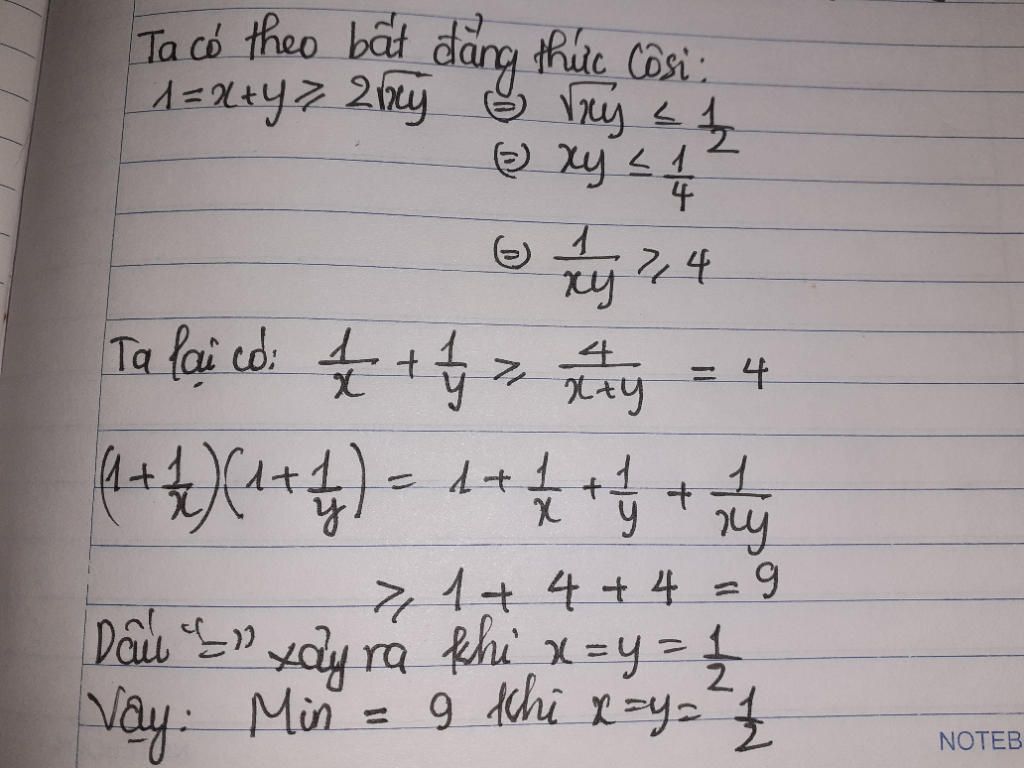 Ta có theo bất đẳng thức Côsi:
1 = x+y ≥ 2√xy (=) √xy ≤ 1/2
(=) xy ≤ 1/4
(=) 1/xy ≥ 4
Ta lại có: 1/x + 1/y ≥ 4/(x+y) = 4
(1+1/x)(1+1/y) = 1 + 1/x + 1/y + 1/xy
≥ 1 + 4 + 4 = 9
Dấu "=" xảy ra khi x = y = 1/2
Vậy: Min = 9 khi x = y = 1/2
NOTEB